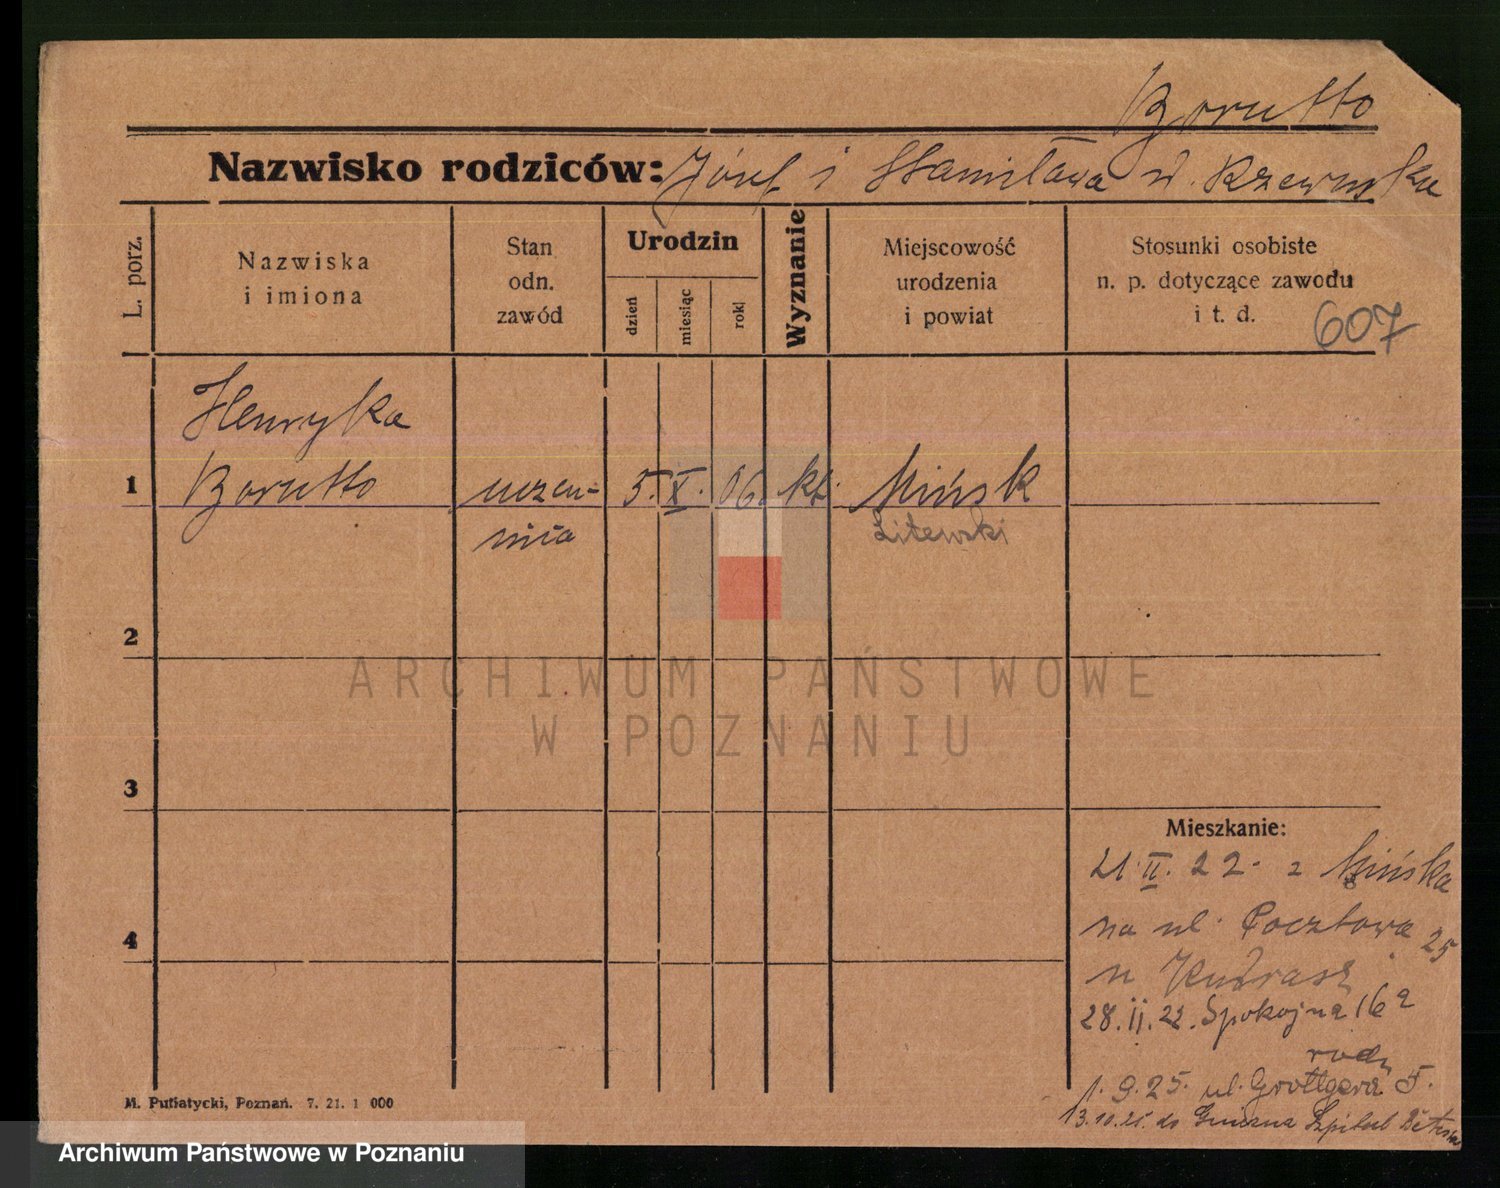 Borutto
Nazwisko rodziców: Józef i Stanisława d. Rzewuska
L. porz.
Nazwiska
i imiona
Stan
odn.
zawód
Urodzin
dzień
miesiąc
rok
Wyznanie
Miejscowość
urodzenia
i powiat
Stosunki osobiste
n. p. dotyczące zawodu
i t. d.
607
Henryka
1 Borutto uczen- 5. X. 06. kt. Mińsk
nica Litewski
2
ARCHIWUM PAŃSTWOWE
W POZNANIU
3
Mieszkanie:
21 II. 22. z Mińska
na ul. Pocztowa 25
4
u
28. II. 22. Spokojna 16a
rodz
1. 9. 25. ul. Grottgera 5.
13.10.25. do Gniezna Szpital
M. Putiatycki, Poznań. 7. 21. 1 000
Archiwum Państwowe w Poznaniu